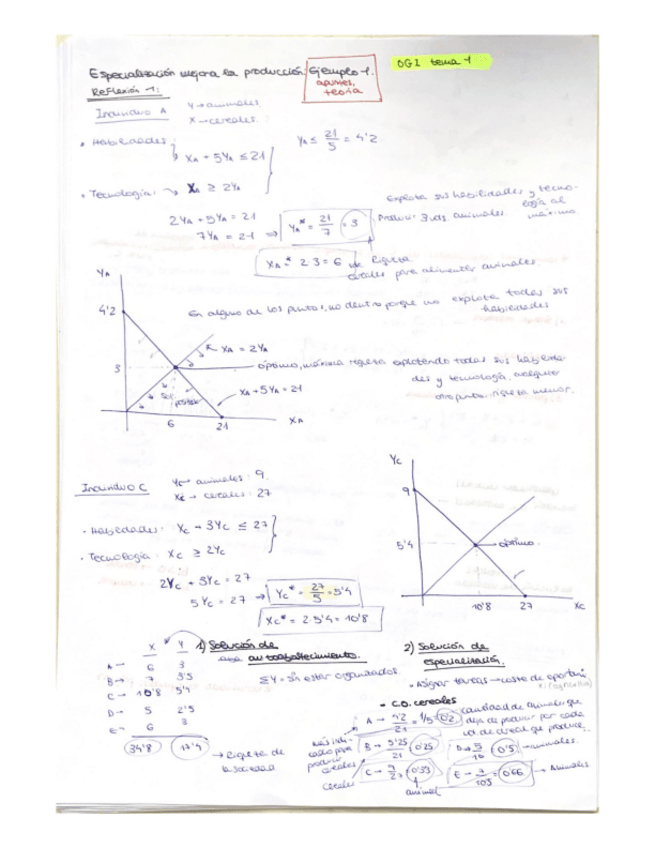 Especialización mejora la producción: Ejemplo 1.
OGI tema 1
apuntes,
teoría
Reflexión 1:
Individuo A
Y → animales
X → cereales.
• Habilidades:
XA + 5YA ≤ 21
YA ≤ 21/5 = 4'2
• Tecnología:
XA ≥ 2YA
2YA + 5YA = 21
7YA = 21 ⇒ YA* = 21/7 = 3
Explota sus habilidades y tecnología al máximo
Producir 3 uds. animales
XA* = 2·3 = 6
Riqueza
cereales para alimentar animales.
YA
4'2
En alguno de los puntos, no dentro porque no explota todas sus
habilidades
XA = 2YA
3
óptimo, máxima riqueza explotando todas sus habilida-
des y tecnología,
otro punto, riqueza menor.
XA + 5YA = 21
6
21
XA
Individuo C
Yc → animales: 9
Xc → cereales: 27
• Habilidades: Xc + 3Yc ≤ 27
• Tecnología: Xc ≥ 2Yc
2Yc + 3Yc = 27
5Yc = 27 → Yc* = 27/5 = 5'4
Xc* = 2·5'4 = 10'8
Yc
9
5'4
óptimo
10'8
27
Xc
X Y
A → 6 3
B → 7 3'5
C → 10'8 5'4
D → 5 2'5
E → 6 3
34'8 17'4
→ Riqueza de
la sociedad
1) Solución de
autoabastecimiento.
ΣY = sin estar organizados
2) Solución de
especialización.
• Asignar tareas → coste de oportuni
• C.O. cereales
A → 4'2/21 = 1/5 = 0'2
cantidad de animales que
deja de producir por cada
ud. de cereal que produce.
B → 5'25/21 0'25
D → 5/10 0'5 → animales.
C → 9/27 = 0'33
E → 7/10'5 = 0'66 → Animales
producir
cereales
Cereales
animal